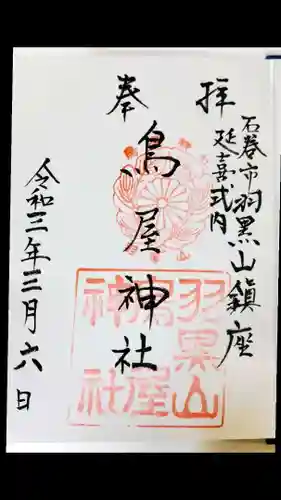 石巻市羽黒山鎮座
延喜式内
奉拝
鳥屋神社
令和三年三月六日
羽黒山
鳥屋
神社